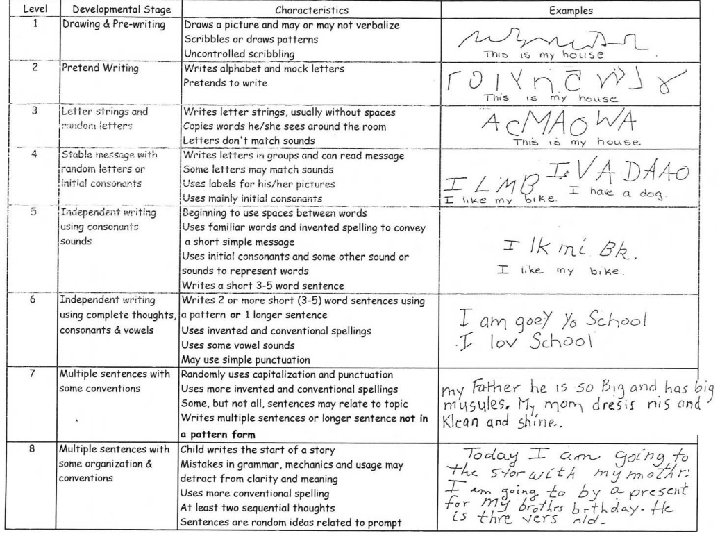 Level
Developmental Stage
Characteristics
Examples
1
Drawing & Pre-writing
Draws a picture and may or may not verbalize
Scribbles or draws patterns
Uncontrolled scribbling
This is my house
2
Pretend Writing
Writes alphabet and mock letters
Pretends to write
This is my house
3
Letter strings and
random letters
Writes letter strings, usually without spaces
Copies words he/she sees around the room
Letters don't match sounds
AcMAOWA
This is my house.
4
Stable message with
random letters or
initial consonants
Writes letters in groups and can read message
Some letters may match sounds
Uses labels for his/her pictures
Uses mainly initial consonants
I LMB
I like my bike.
I have a dog.
5
Independent writing
using consonants
sounds
Beginning to use spaces between words
Uses familiar words and invented spelling to convey
a short simple message
Uses initial consonants and some other sound or
sounds to represent words
Writes a short 3-5 word sentence
I lk mi Bk.
I like my bike.
6
Independent writing
using complete thoughts,
consonants & vowels
Writes 2 or more short (3-5) word sentences using
a pattern or 1 longer sentence
Uses invented and conventional spellings
Uses some vowel sounds
May use simple punctuation
I am goey Yo School
I lov School
7
Multiple sentences with
some conventions
Randomly uses capitalization and punctuation
Uses more invented and conventional spellings
Some, but not all, sentences may relate to topic
Writes multiple sentences or longer sentence not in
a pattern form
my Father he is so Big and has big
musules. My mom dresis nis and
Klean and shine.
8
Multiple sentences with
some organization &
conventions
Child writes the start of a story
Mistakes in grammar, mechanics and usage may
detract from clarity and meaning
Uses more conventional spelling
At least two sequential thoughts
Sentences are random ideas related to prompt
Today I am going to
the stor with my mothr.
I am going to by a present
for my brothrs birthday. He
is thre yers old.